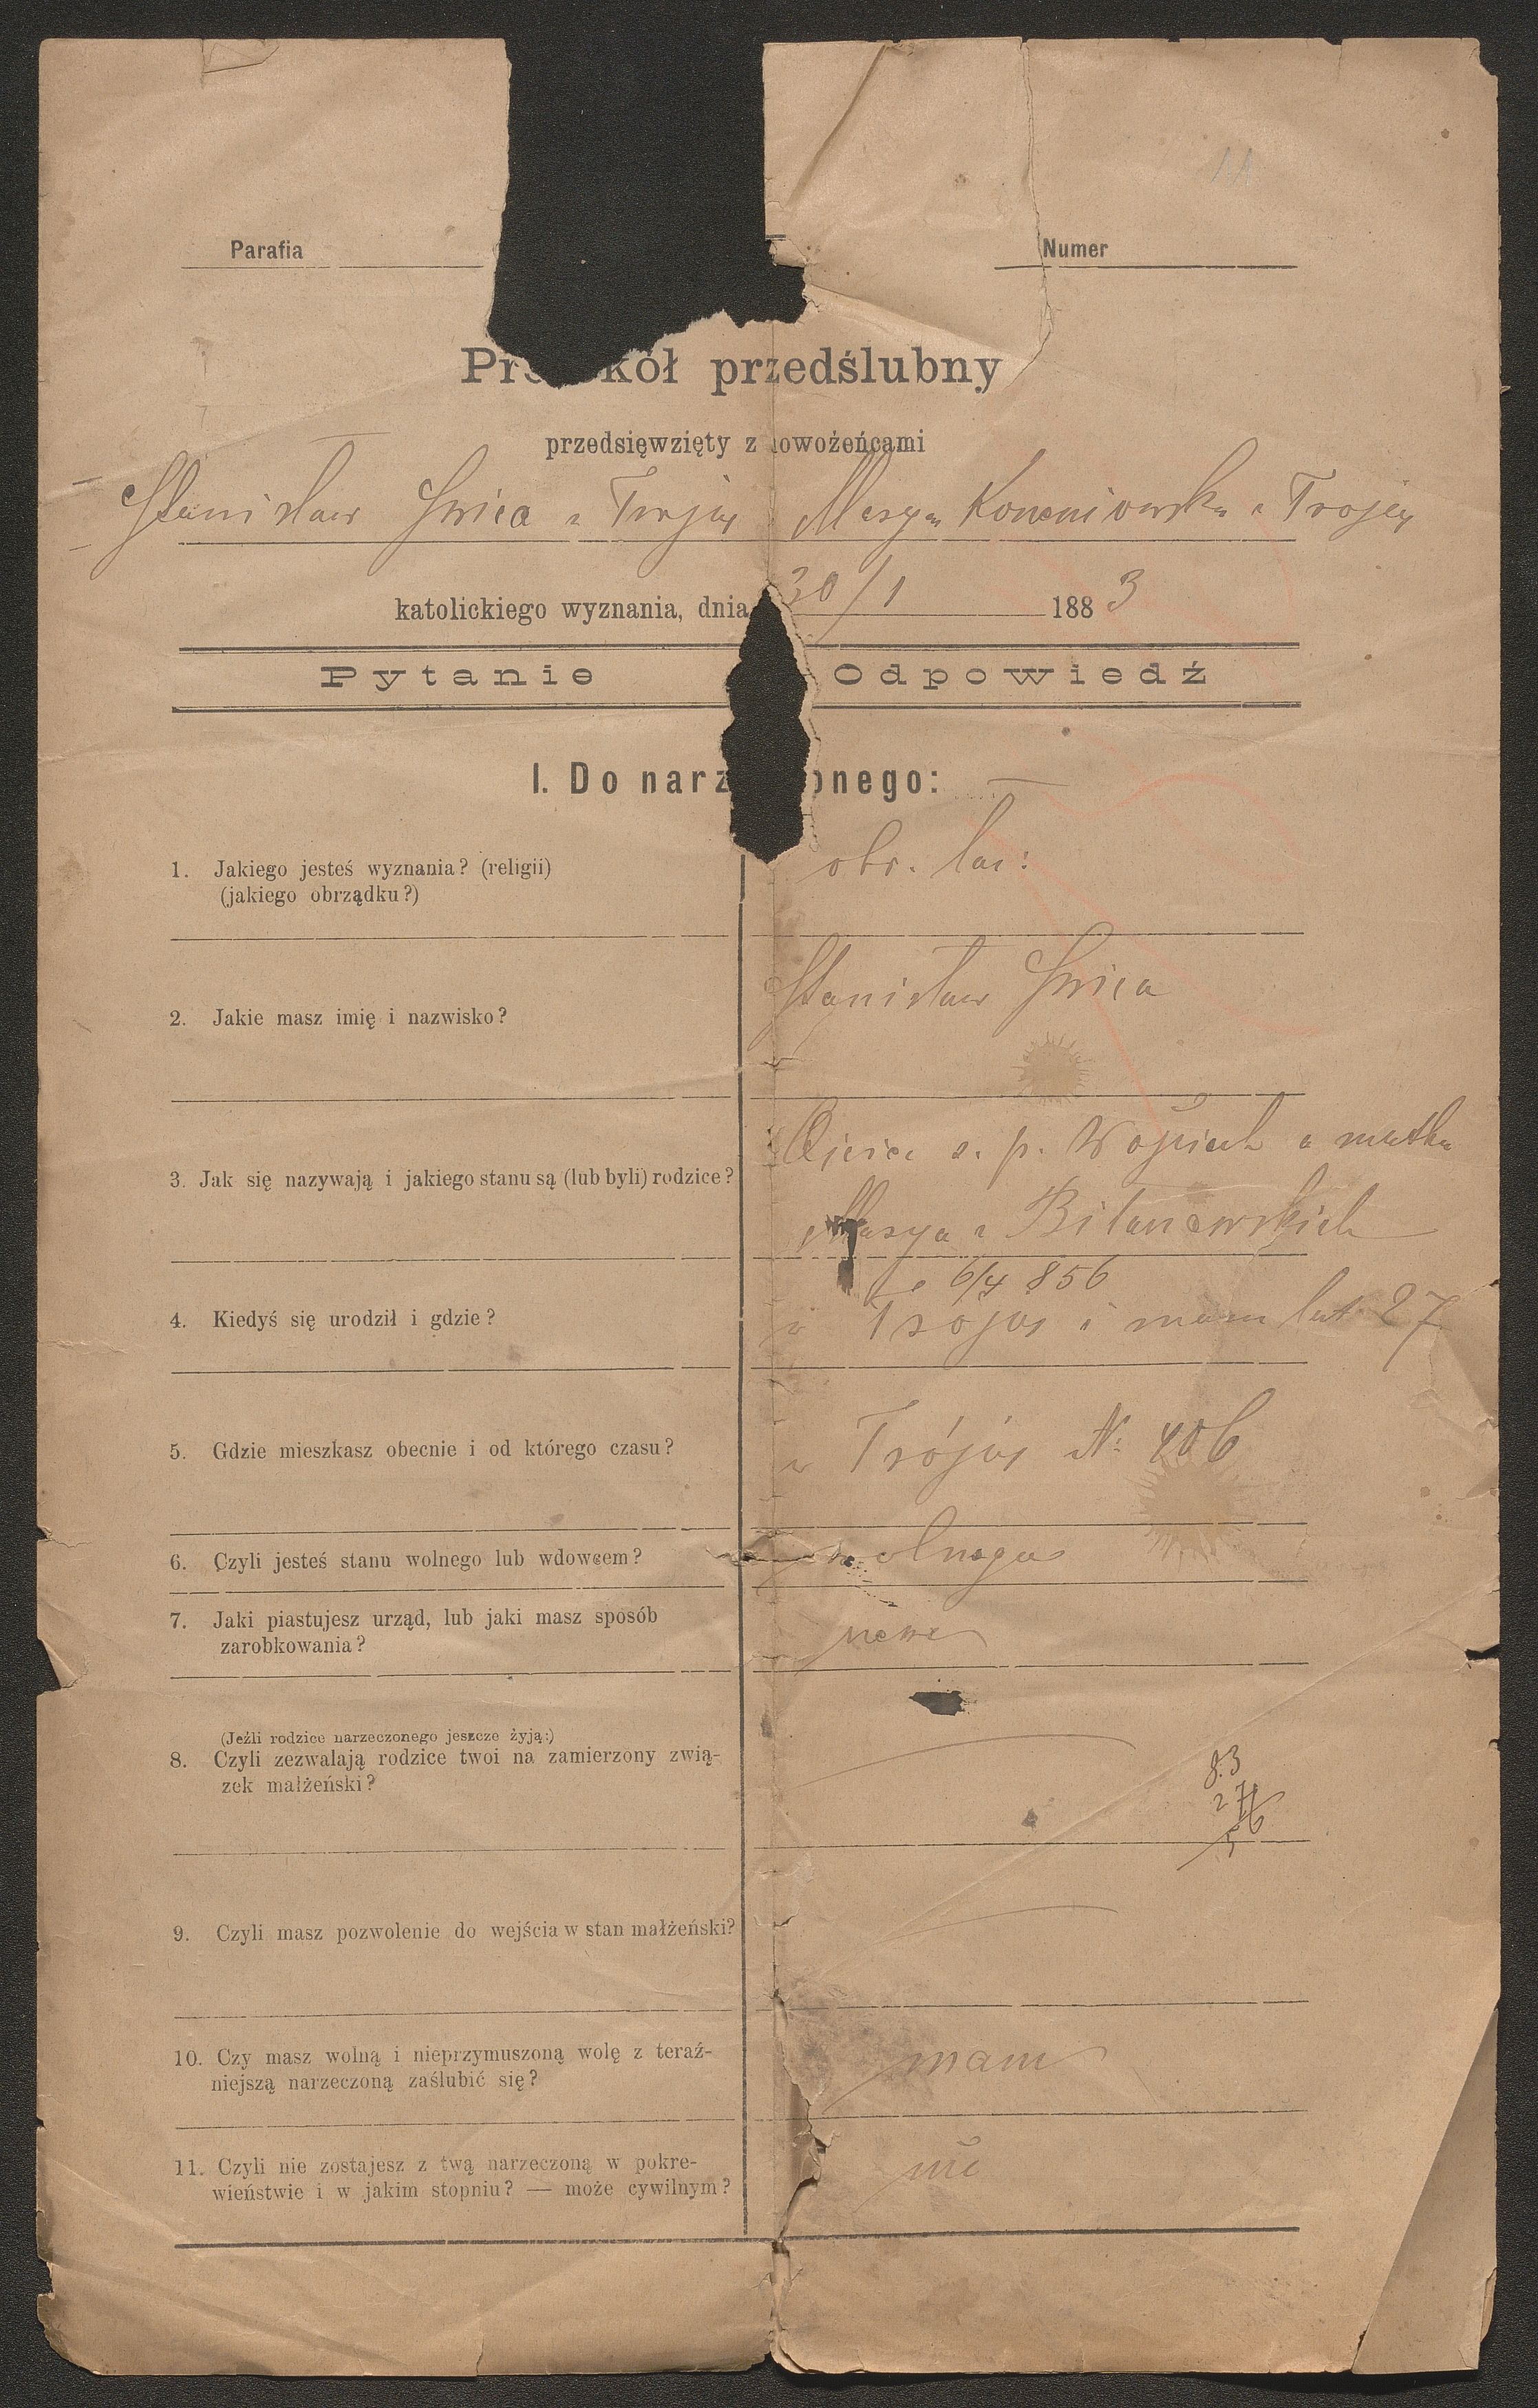 11
Parafia
Numer
Pro kół przedślubny
przedsięwzięty z owożeńcami
Stanisław z Trójcy Marya z Trojcy
katolickiego wyznania, dnia 30/1 1883
Pytanie Odpowiedź
I. Do narz onego:
1. Jakiego jesteś wyznania? (religii) obr. łac:
(jakiego obrządku?)
2. Jakie masz imię i nazwisko? Stanisław
3. Jak się nazywają i jakiego stanu są (lub byli) rodzice? Ojciec ś. p. Wojciech a matka
Marya z
6/4 856
4. Kiedyś się urodził i gdzie? w Trójcy i mam lat 27
5. Gdzie mieszkasz obecnie i od którego czasu? w Trójcy N: 406
6. Czyli jesteś stanu wolnego lub wdowcem? wolnego
7. Jaki piastujesz urząd, lub jaki masz sposób
zarobkowania?
(Jeźli rodzice narzeczonego jeszcze żyją:)
8. Czyli zezwalają rodzice twoi na zamierzony zwią-
zek małżeński?
83
27
56
9. Czyli masz pozwolenie do wejścia w stan małżeński?
10. Czy masz wolną i nieprzymuszoną wolę z teraź- mam
niejszą narzeczoną zaślubić się?
11. Czyli nie zostajesz z twą narzeczoną w pokre- nie
wieństwie i w jakim stopniu? — może cywilnym?